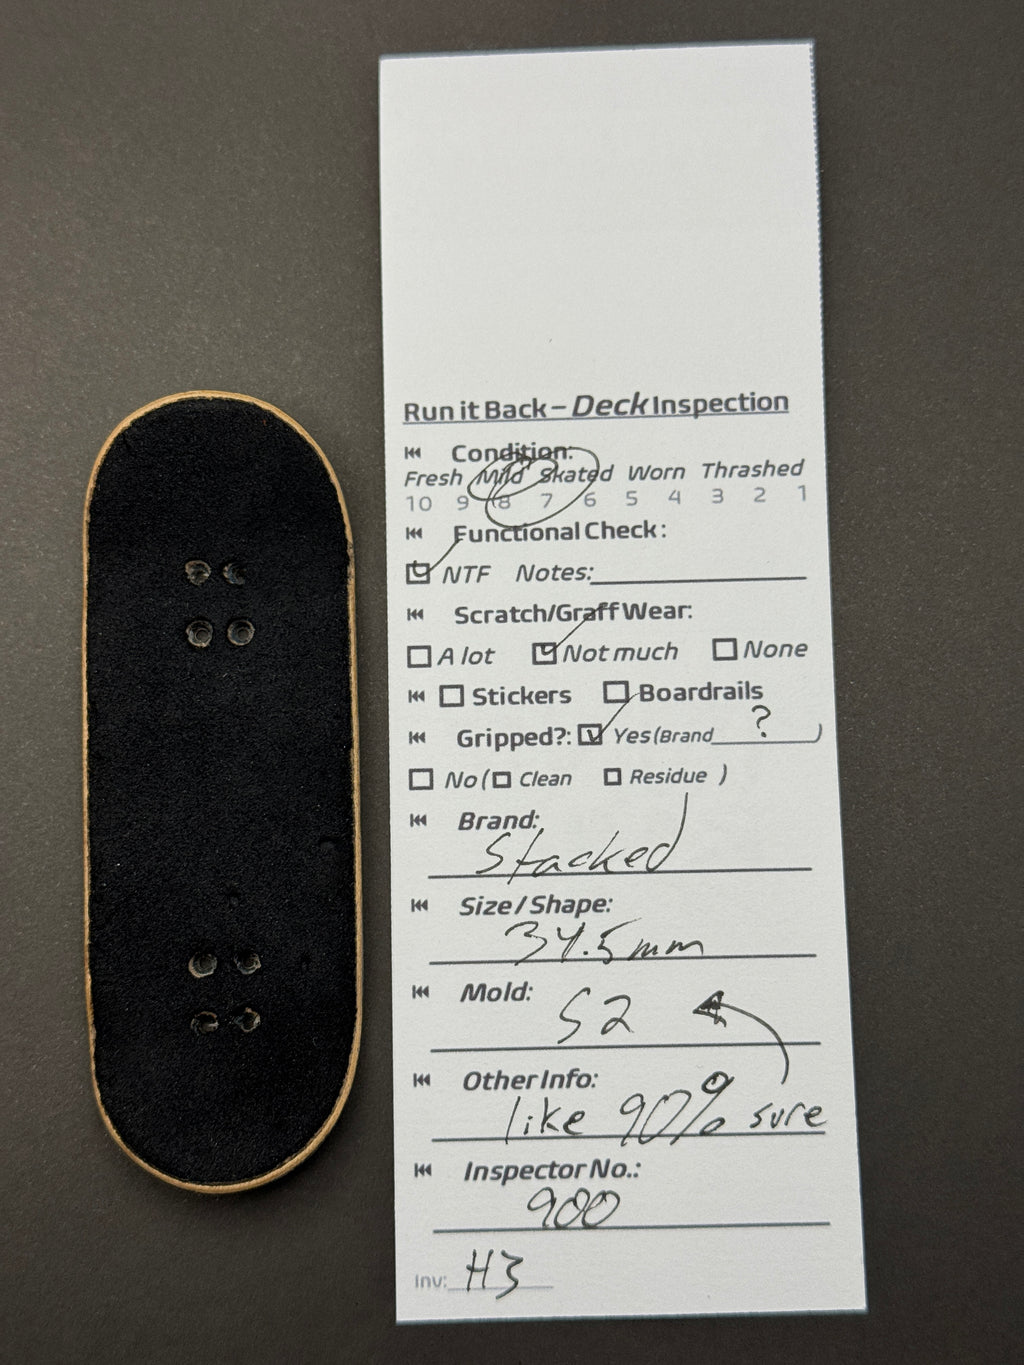 Run it Back – Deck Inspection
Condition:
Fresh Mild Skated Worn Thrashed
10 9 8 7 6 5 4 3 2 1
Functional Check:
NTF Notes:
Scratch/Graff Wear:
A lot Not much None
Stickers Boardrails
Gripped?: Yes (Brand ? )
No ( Clean Residue )
Brand:
Stacked
Size / Shape:
34.5mm
Mold:
S2
Other Info:
like 90% sure
Inspector No.:
900
Inv: H3